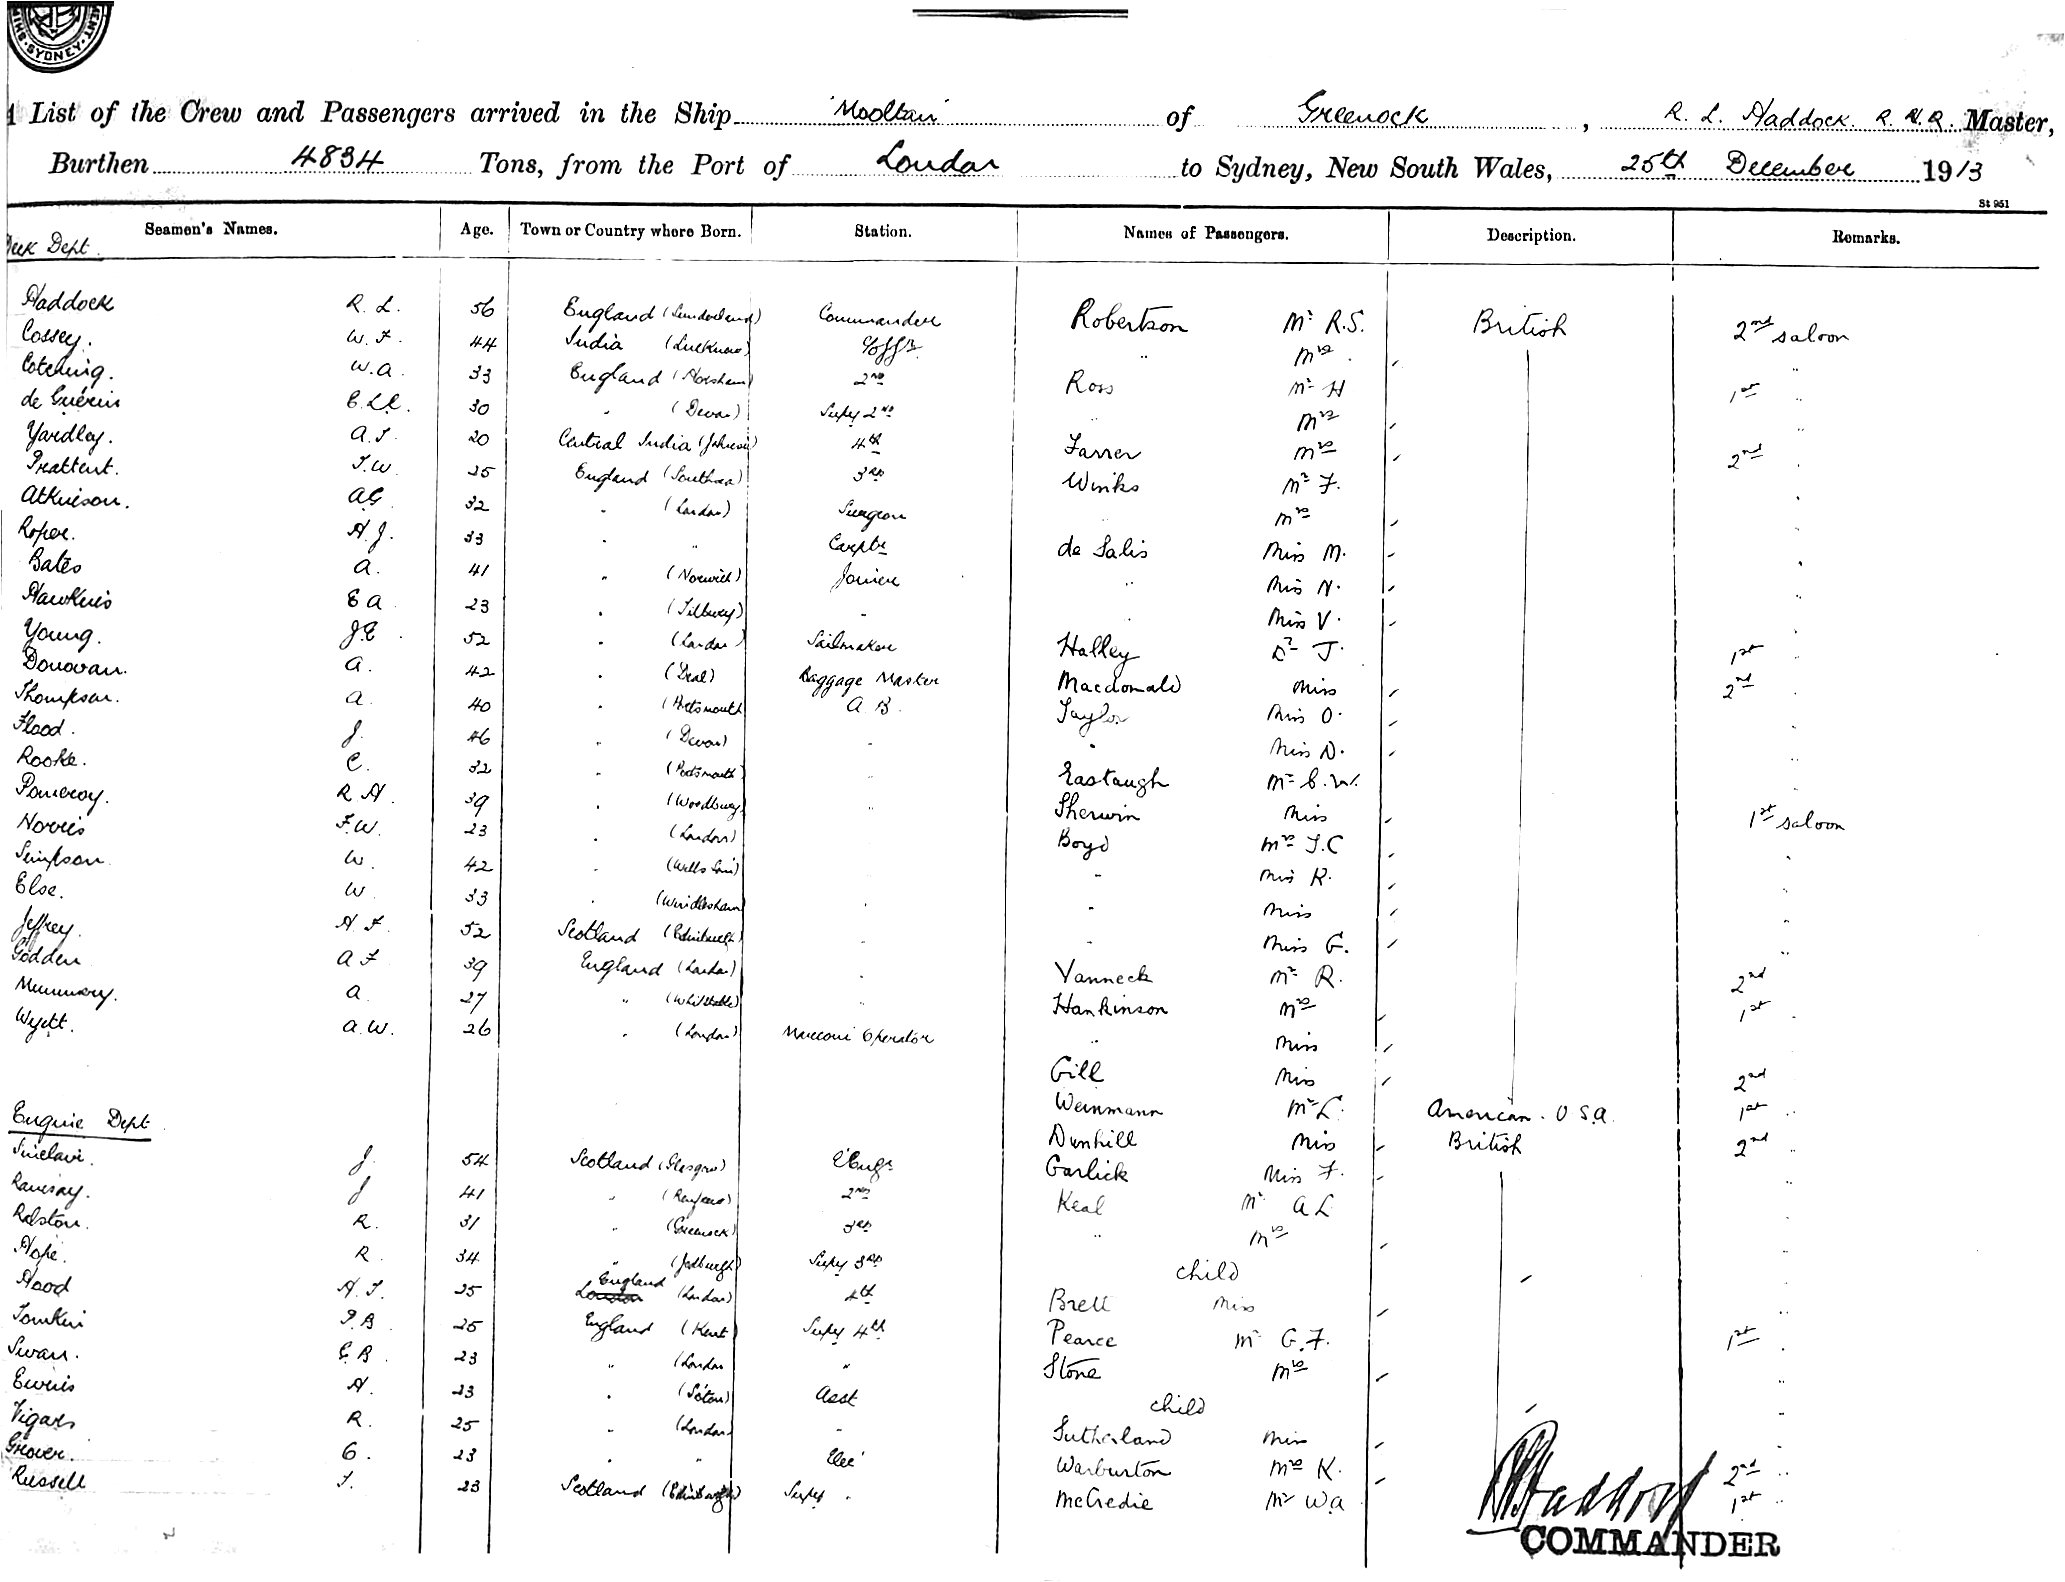 SYDNEY
A List of the Crew and Passengers arrived in the Ship "Mooltan" of Greenock, R. L. Haddock. R.N.R. Master,
Burthen 4834 Tons, from the Port of London to Sydney, New South Wales, 25th December 1913
St 951
Seamen's Names. Age. Town or Country where Born. Station. Names of Passengers. Description. Remarks.
Deck Dept.
Haddock R. L. 56 England (Sunderland) Commander Robertson Mr R.S. British 2nd saloon
Cossey. W. F. 44 India (Lucknow) C/Offr " Mrs "
Cotching. W.A. 33 England (Horsham) 2nd Ross Mr H 1st "
de Guérin 30 " (Devon) Supy 2nd " Mrs "
Yardley. A.J. 20 Central India 4th Farrer Mrs 2nd "
Prattent. J.W. 25 England (Southsea) 3rd Winks Mr F. "
Atkinson. A.G 32 " (London) Surgeon " Mrs "
Roper. H.J. 33 " " Carptr de Salis Miss M. "
Bates A. 41 " (Norwich) Joiner " Miss N. "
Hawkins E A 23 " (Tilbury) " Miss V. "
Young. J.E. 52 " (London) Sailmaker Halley Dr J. 1st "
Donovan. A. 42 " (Deal) Baggage Master Macdonald Miss 2nd "
Thompson. A. 40 " (Portsmouth A B. Taylor Miss O. "
Flood. J. 46 " (Devon) " " Miss D. "
Rooke. C. 32 " (Portsmouth) " Eastaugh Mr C.W. "
Pomeroy. R H. 39 " (Woodbury) " Sherwin Miss 1st saloon
Norris F.W. 23 " (London) Boyd Mrs T.C "
Simpson W. 42 " " Miss K. "
Else. W. 33 " (Windlesham) " " Miss "
Jeffrey. H. F. 52 Scotland (Edinburgh) " " Miss G. "
Godden A F 39 England (London) " Vanneck Mr R. 2nd
Mummery. A 27 " (Whitstable) " Hankinson Mrs 1st "
Wyett. A.W. 26 " (London) Marconi Operator " Miss "
Gill Miss 2nd
Weinmann Mr L. American. U S.A. 1st "
Engine Dept
Dunhill Miss British 2nd "
Sinclair. J. 54 Scotland (Glasgow) C/Engr Garlick Miss F. "
Ramsay. J 41 " (Renfrew) 2nd Keal Mr A L "
Ralston. R. 31 " (Greenock) 3rd " Mrs "
Hope. R. 34 " (Jedburgh) Supy 3rd child "
Hood H. J. 25 England (London) 4th Brett Miss "
Tomkin P.B 25 England (Kent) Supy 4th Pearce Mr G.F. 1st "
Swan. G.B 23 " (London " Stone Mrs "
Ewins H. 23 " (S'ton) Asst child "
Vigars R. 25 " (London) " Sutherland Miss "
Grover. G. 23 " " Elec Warburton Mrs K. 2nd "
Russell J. 23 Scotland (Edinburgh) Supy " McCredie Mr W A 1st "
R L Haddock
COMMANDER